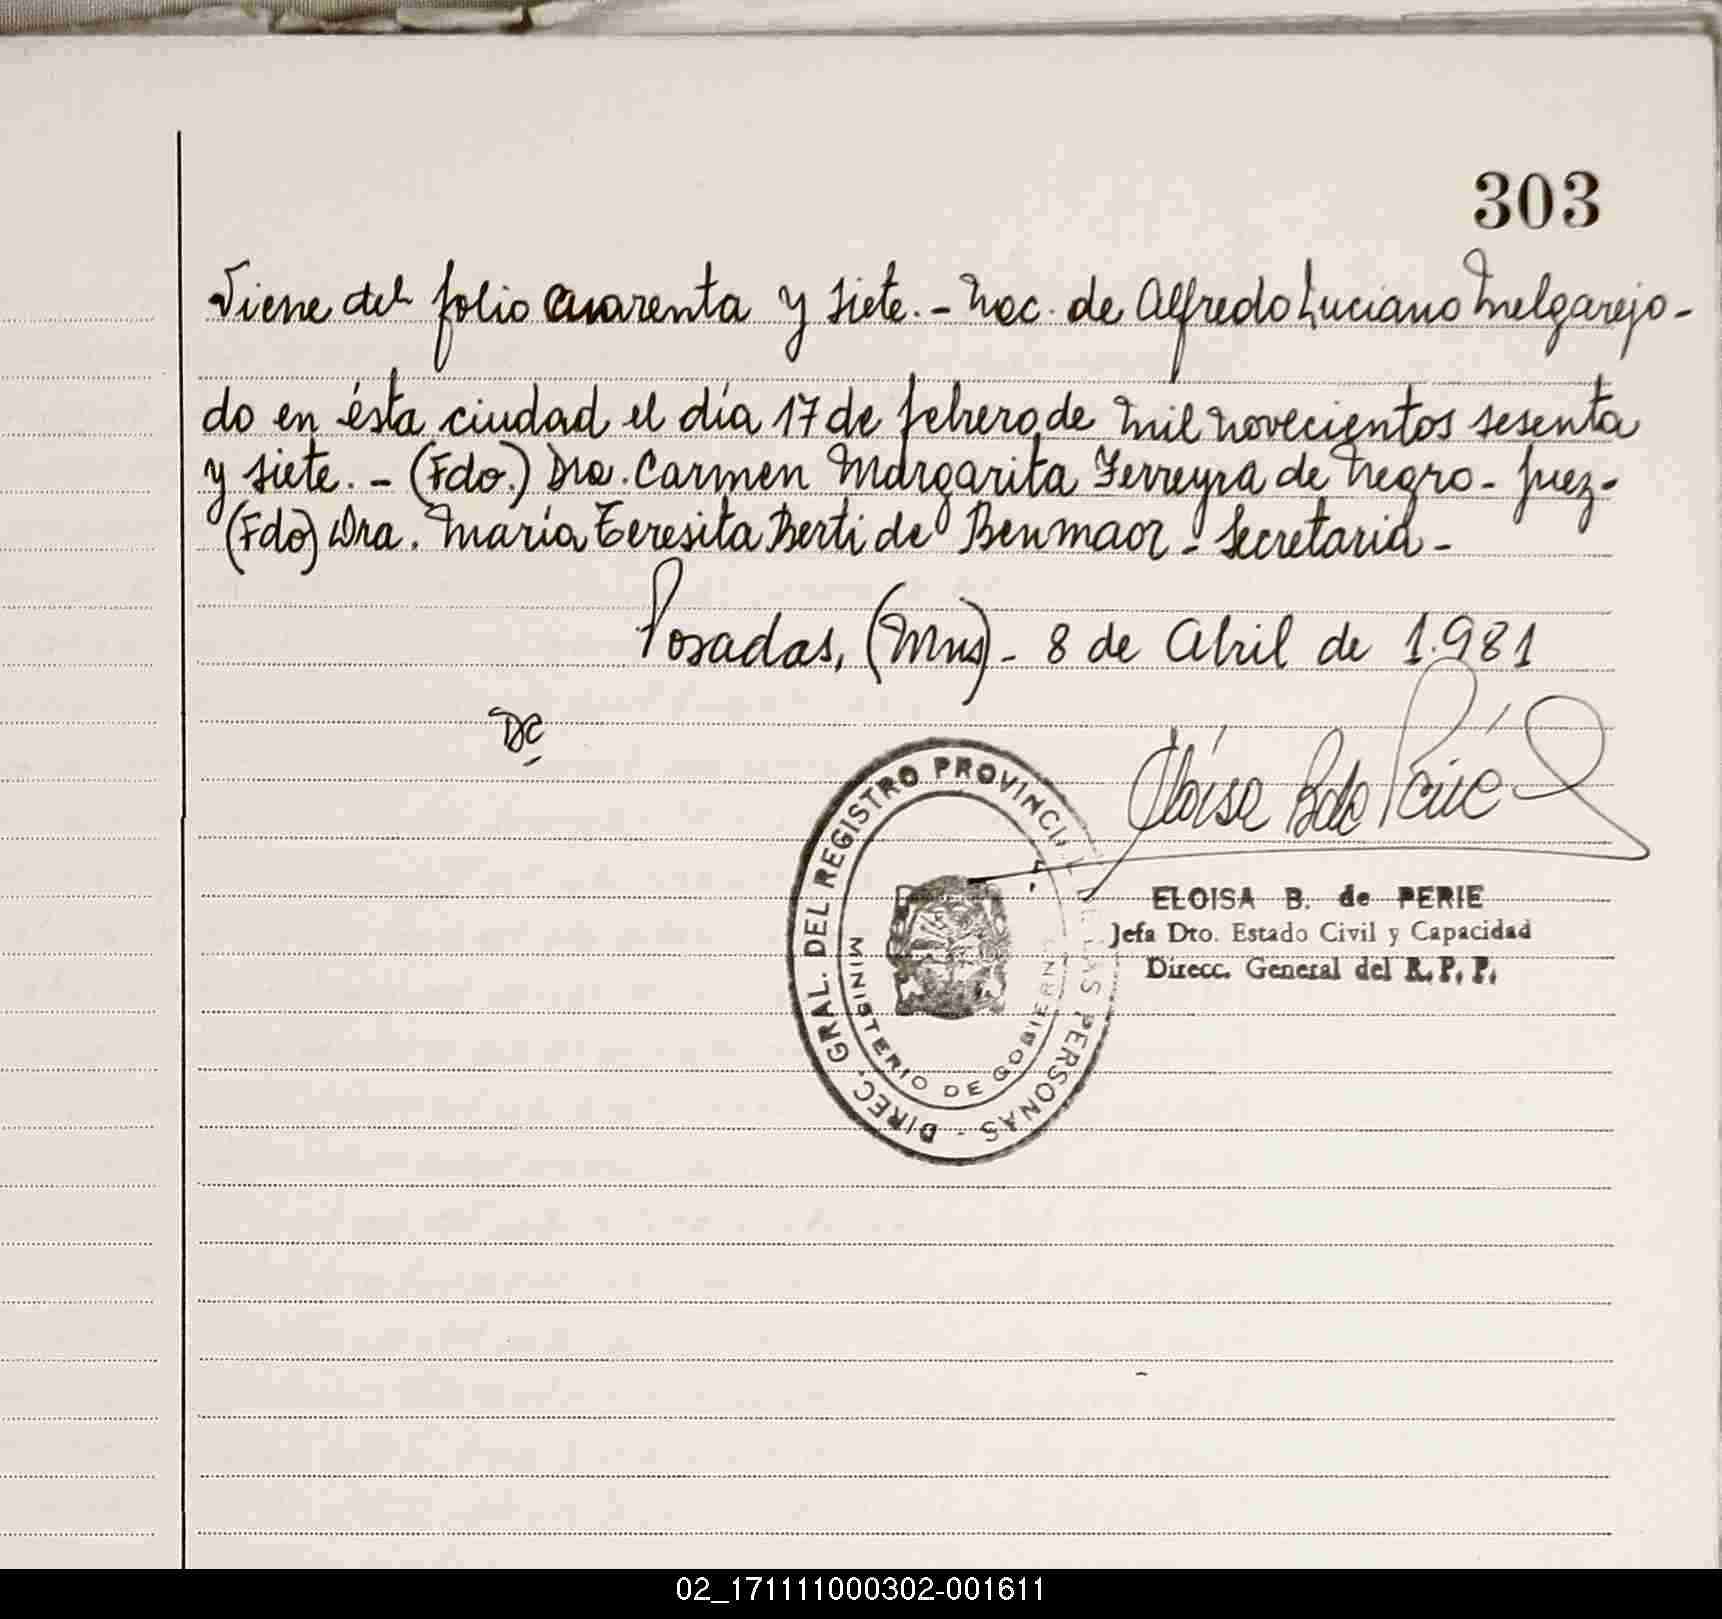 303
Viene del folio cuarenta y siete.- Nac. de Alfredo Luciano Melgarejo-
do en ésta ciudad el día 17 de febrero de mil novecientos sesenta
y siete.- (Fdo.) Dra. Carmen Margarita Ferreyra de Negro- Juez-
(Fdo) Dra. María Teresita Berti de Benmaor- Secretaria-
Posadas, (Mns)- 8 de Abril de 1.981
DC
Eloisa B de Perié
DIREC. GRAL. DEL REGISTRO PROVINCIAL DE LAS PERSONAS -
MINISTERIO DE GOBIERNO
ELOISA B. de PERIE
Jefa Dto. Estado Civil y Capacidad
Direcc. General del R. P. P.
02_171111000302-001611